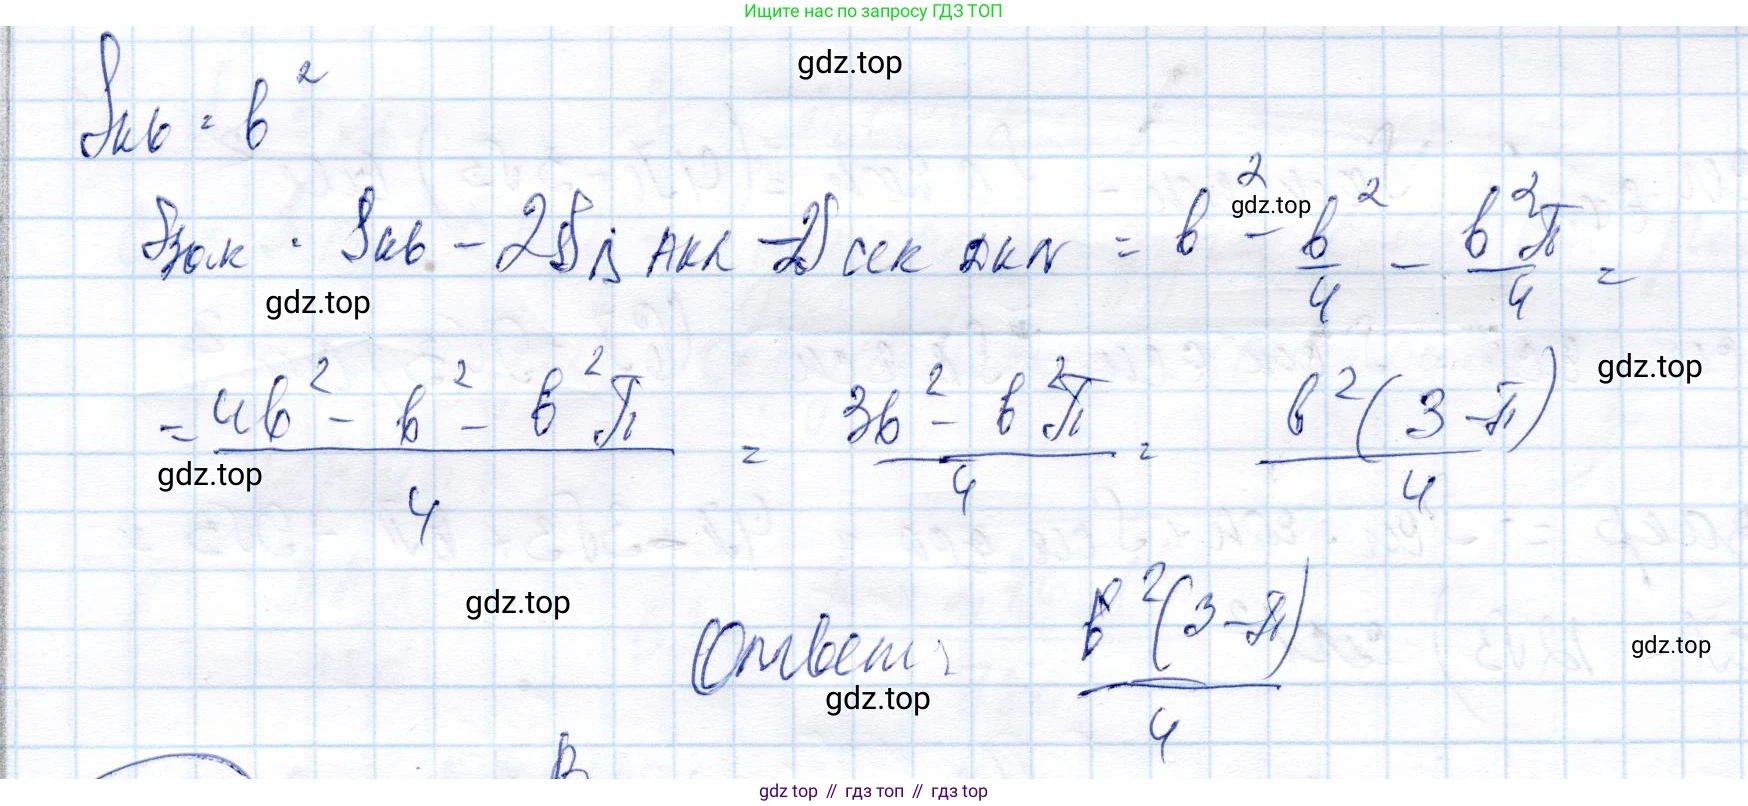 Ищите нас по запросу ГДЗ ТОП
gdz.top
Sкв = b²
Sзак = Sкв - 2SΔ AKD - 2Sсек DKN = b² - b²/4 - b²π/4 =
gdz.top
gdz.top
= (4b² - b² - b²π)/4 = (3b² - b²π)/4 = b²(3 - π)/4
gdz.top
gdz.top
gdz.top
Ответ: b²(3 - π)/4
gdz.top
gdz.top
B
gdz top // гдз топ // gdz top